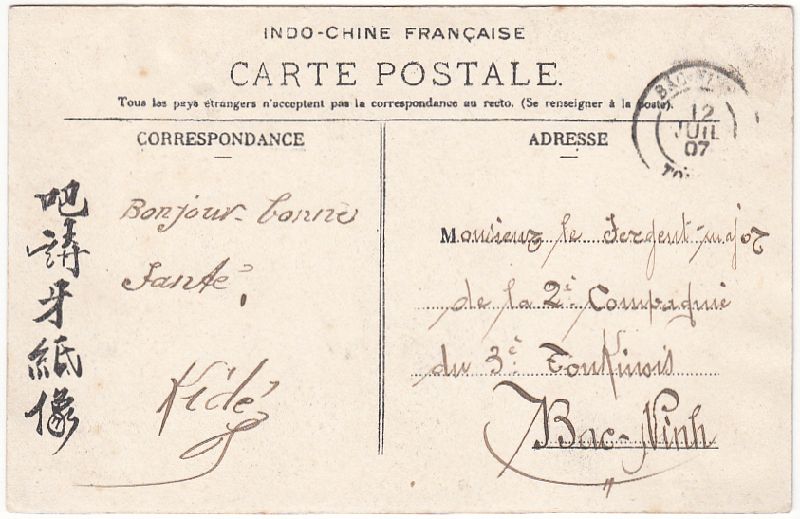 INDO-CHINE FRANÇAISE
CARTE POSTALE.
Tous les pays étrangers n'acceptent pas la correspondance au recto. (Se renseigner à la poste).
CORRESPONDANCE
Bonjour - bonne
Santé,
吧請牙紙像
ADRESSE
Monsieur le Sergent-major
de la 2e Compagnie
du 3e Tonkinois
Bac-Ninh
BAC-NINH
12
JUIL
07